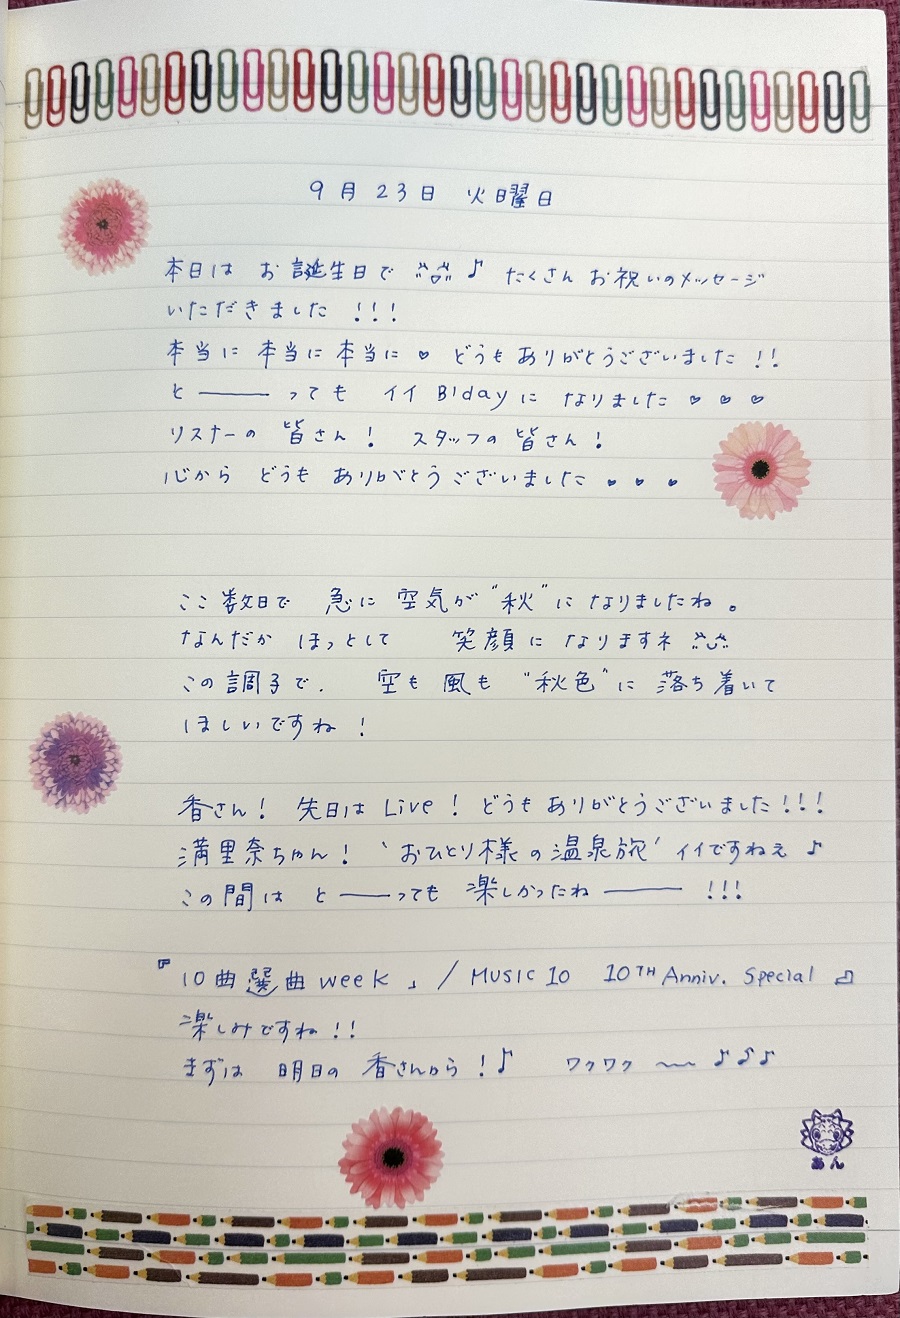 9月23日 火曜日
本日は お誕生日で ♪ たくさん お祝いのメッセージ
いただきました !!!
本当に 本当に 本当に ♡ どうも ありがとうございました !!
と――っても イイ B'day に なりました ♡ ♡ ♡
リスナーの 皆さん! スタッフの 皆さん!
心から どうも ありがとうございました ♥ ♥ ♥
ここ数日で 急に 空気が "秋" に なりましたね。
なんだか ほっとして 笑顔に なりますネ
この調子で、 空も 風も "秋色" に 落ち着いて
ほしいですね !
香さん! 先日は Live! どうも ありがとうございました!!!
満里奈ちゃん! 'おひとり様の温泉旅' イイですねぇ ♪
この間は と――っても 楽しかったね―― !!!
『10曲選曲week』/ MUSIC 10 10TH Anniv. Special 』
楽しみですね !!
まずは 明日の 香さんから !♪ ワクワク 〜〜 ♪♪♪
あん